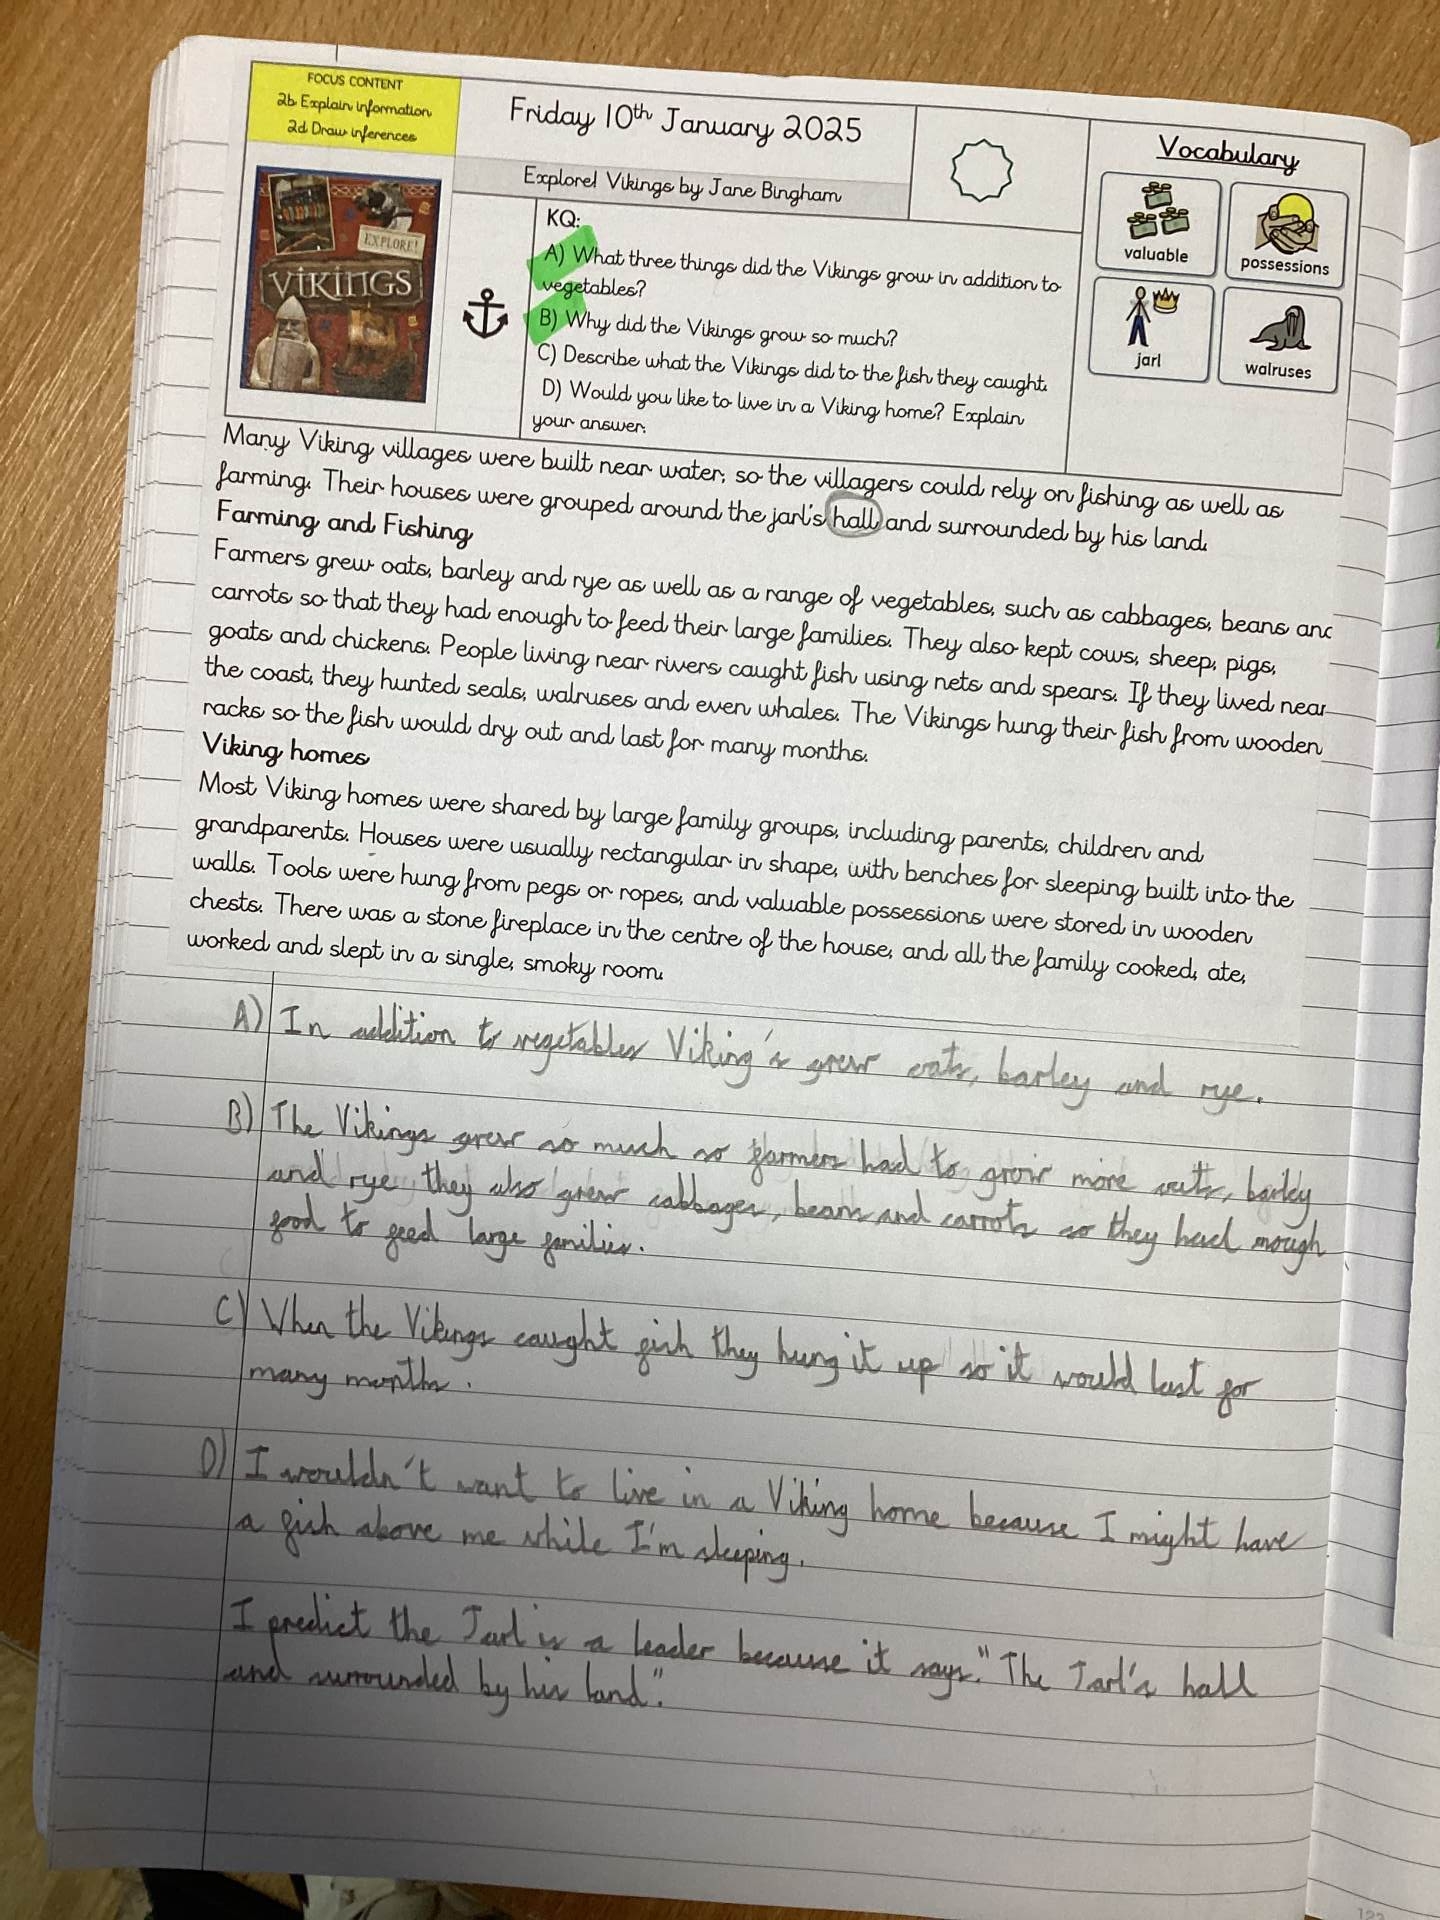 FOCUS CONTENT
2b Explain information
2d Draw inferences
Friday 10th January 2025
Explore! Vikings by Jane Bingham
EXPLORE!
VIKINGS
KQ:
A) What three things did the Vikings grow in addition to
vegetables?
B) Why did the Vikings grow so much?
C) Describe what the Vikings did to the fish they caught.
D) Would you like to live in a Viking home? Explain
your answer.
Vocabulary
valuable
possessions
jarl
walruses
Many Viking villages were built near water, so the villagers could rely on fishing as well as
farming. Their houses were grouped around the jarl's hall and surrounded by his land.
Farming and Fishing
Farmers grew oats, barley and rye as well as a range of vegetables, such as cabbages, beans and
carrots so that they had enough to feed their large families. They also kept cows, sheep, pigs,
goats and chickens. People living near rivers caught fish using nets and spears. If they lived near
the coast, they hunted seals, walruses and even whales. The Vikings hung their fish from wooden
racks so the fish would dry out and last for many months.
Viking homes
Most Viking homes were shared by large family groups, including parents, children and
grandparents. Houses were usually rectangular in shape, with benches for sleeping built into the
walls. Tools were hung from pegs or ropes, and valuable possessions were stored in wooden
chests. There was a stone fireplace in the centre of the house, and all the family cooked, ate,
worked and slept in a single, smoky room.
A) In addition to vegetables Viking's grew oats, barley and rye.
B) The Vikings grew so much so farmers had to grow more oats, barley
and rye they also grew cabbages, beans and carrots so they had enough
food to feed large families.
C) When the Vikings caught fish they hung it up so it would last for
many months.
D) I wouldn't want to live in a Viking home because I might have
a fish above me while I'm sleeping.
I predict the Jarl is a leader because it says." The Jarl's hall
and surrounded by his land".
122